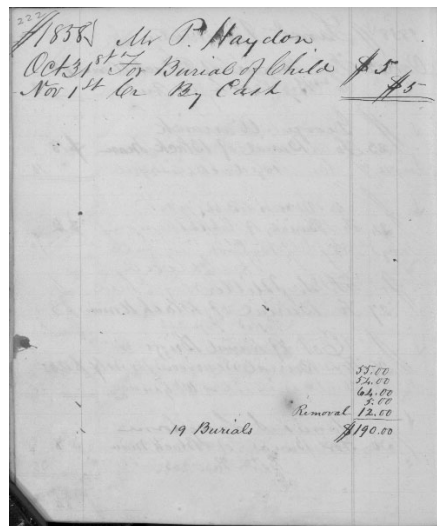 222
1858 Mr P. Haydon
Oct 31st For Burial of Child $5
Nov 1st Cr By Cash $5
55.00
54.00
64.00
5.00
Removal 12.00
19 Burials $190.00